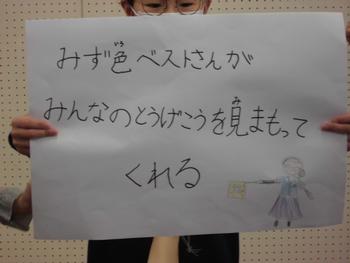 みず色ベストさんが
みんなのとうげこうを見まもって
くれる